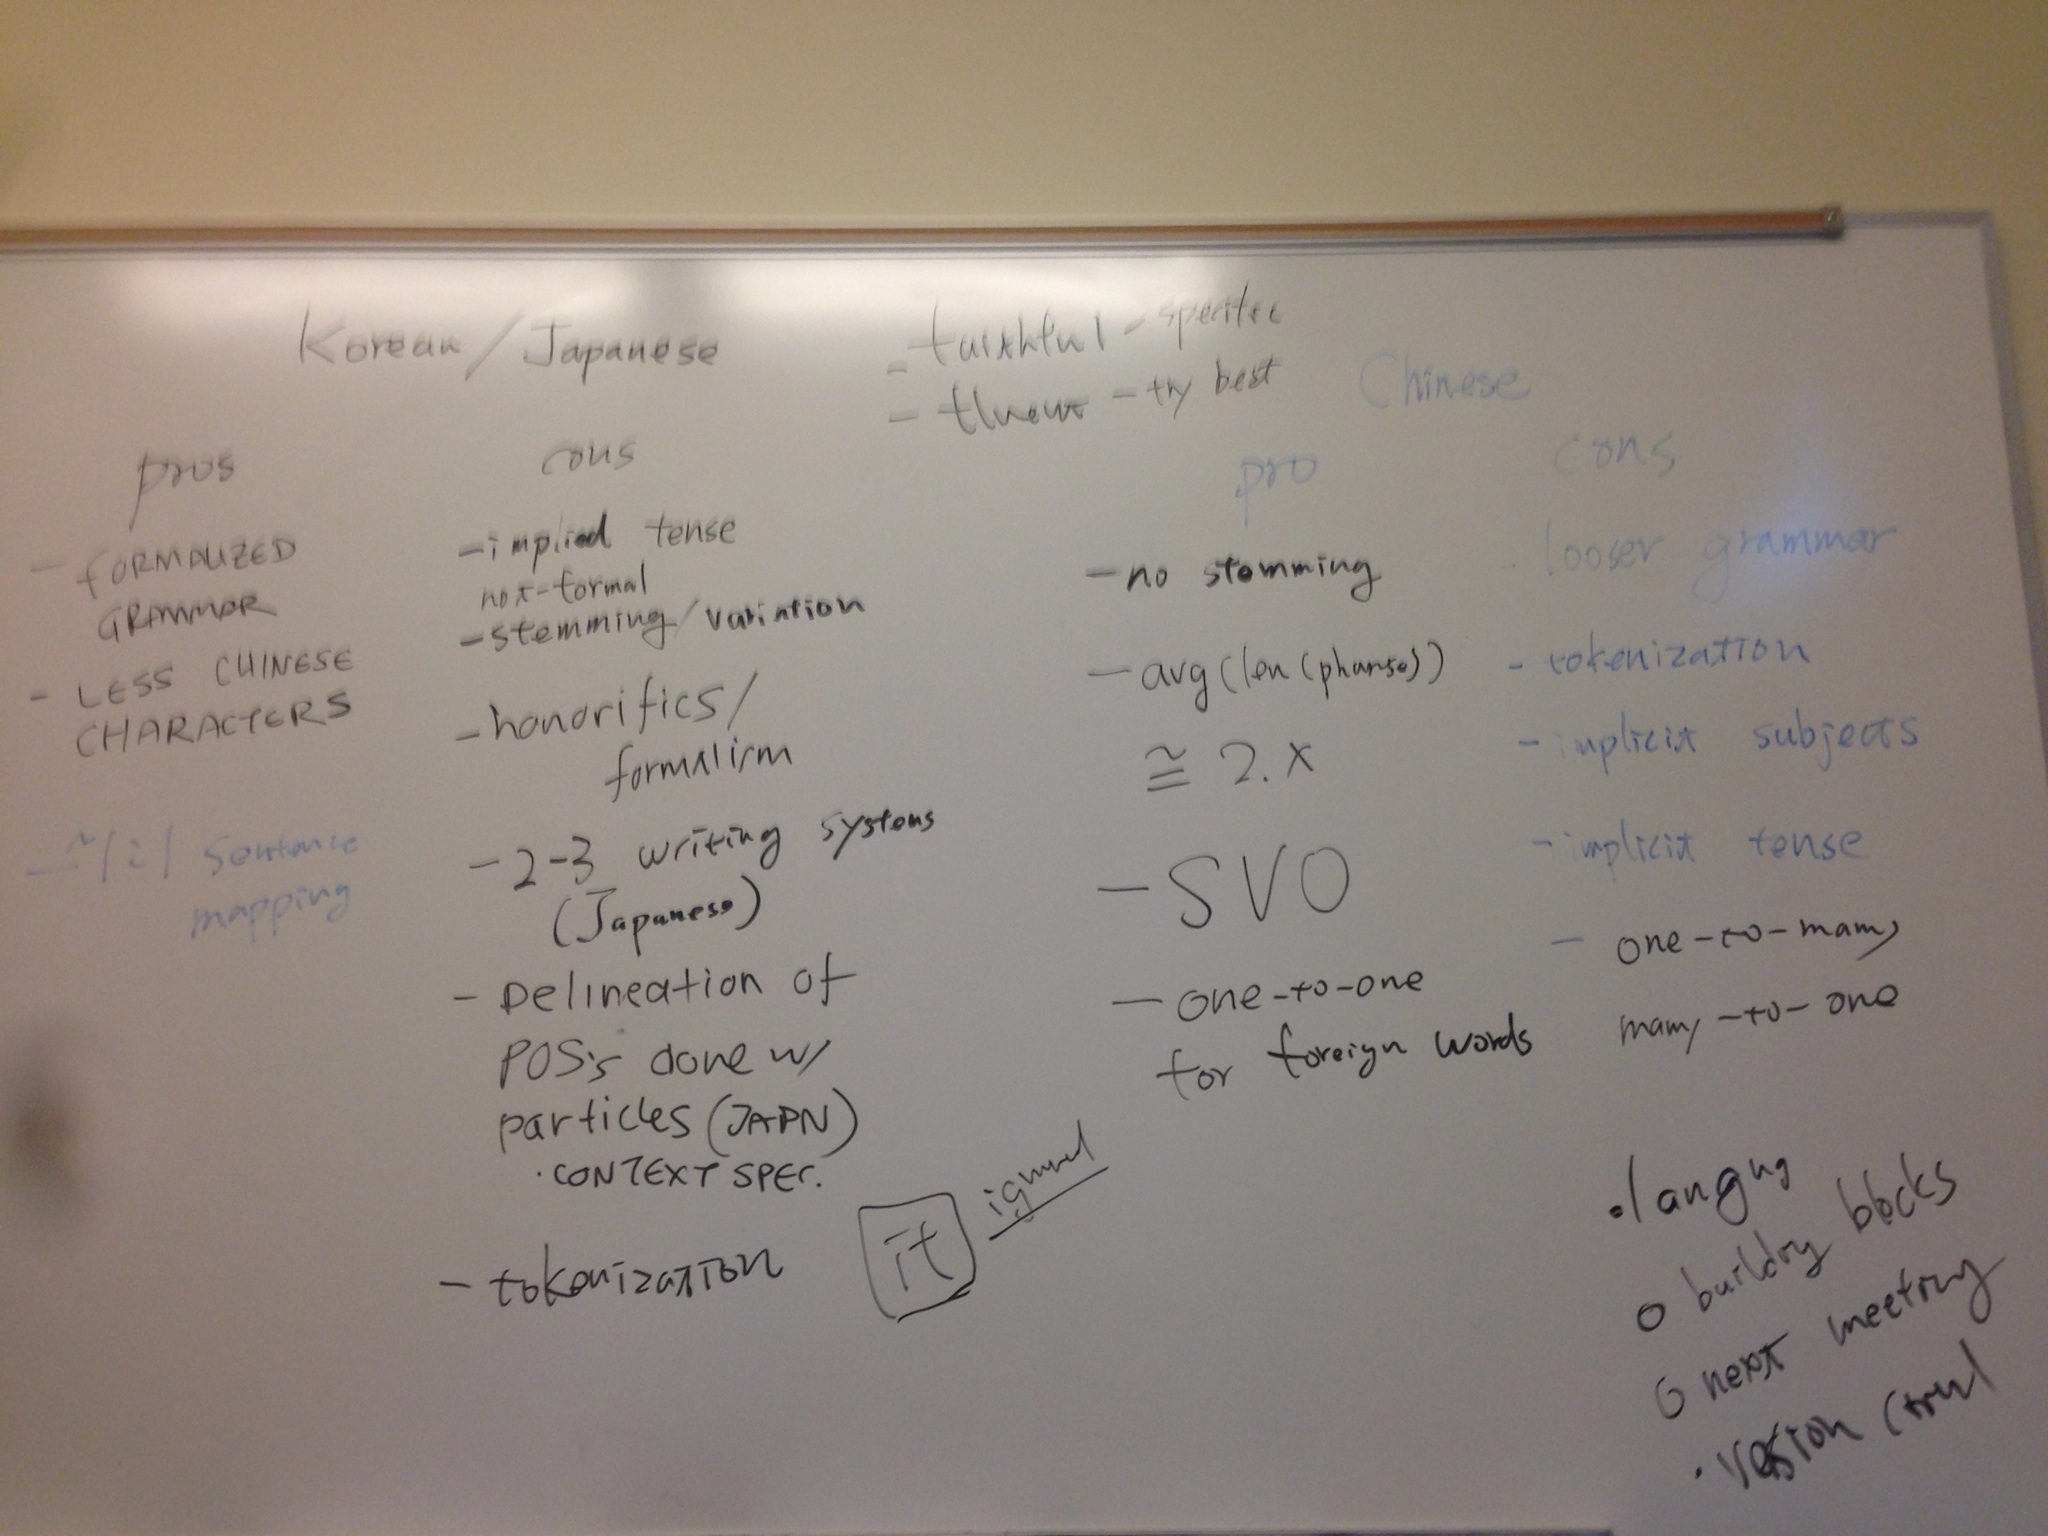 Korean / Japanese
- faithful - specific
- fluent - try best
Chinese
pros
cons
pro
cons
- FORMALIZED
GRAMMAR
- LESS CHINESE
CHARACTERS
sentence
mapping
- implied tense
not-formal
- stemming/variation
- honorifics/
formalism
- 2-3 writing systems
(Japanese)
- Delineation of
POS's done w/
particles (JAPN)
· CONTEXT SPEC.
- tokenization
it
ignored
- no stemming
- avg(len(pharse))
≅ 2.x
- SVO
- one-to-one
for foreign words
- looser grammar
- tokenization
- implicit subjects
- implicit tense
- one-to-many
many-to-one
• langug
o building blocks
o next meeting
• version